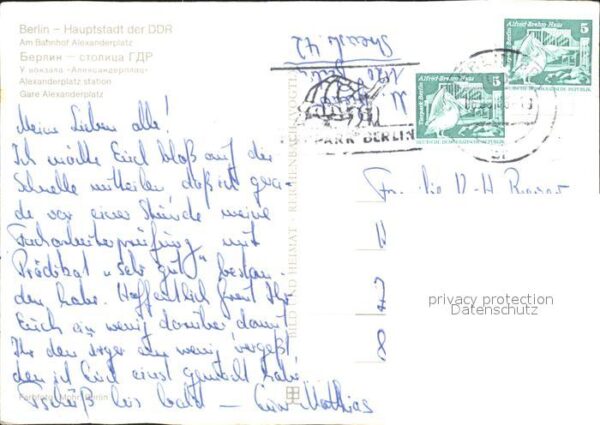 Berlin – Hauptstadt der DDR
Am Bahnhof Alexanderplatz
Берлин – столица ГДР
У вокзала «Александерплац»
Alexanderplatz station
Gare Alexanderplatz
Meine Lieben alle!
Ich möchte Euch bloß auf die
Schnelle mitteilen daß ich gera-
de vor einer Stunde meine
Facharbeiterprüfung mit
Prädikat „sehr gut" bestan-
den habe. Hoffentlich freut Ihr
Euch ein wenig darüber damit
Ihr den Ärger ein wenig vergeßt
den ich Euch einst gemacht habe
Tschüß bis bald – Euer Mathias
BILD UND HEIMAT · REICHENBACH
PARK BERLIN
Tierpark Berlin
Alfred-Brehm-Haus
5
DEUTSCHE DEMOKRATISCHE REPUBLIK
Tierpark Berlin
Alfred-Brehm-Haus
5
DEUTSCHE DEMOKRATISCHE REPUBLIK
7
8
privacy protection
Datenschutz
Berlin